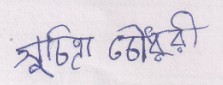 সুচিত্রা চৌধুরী